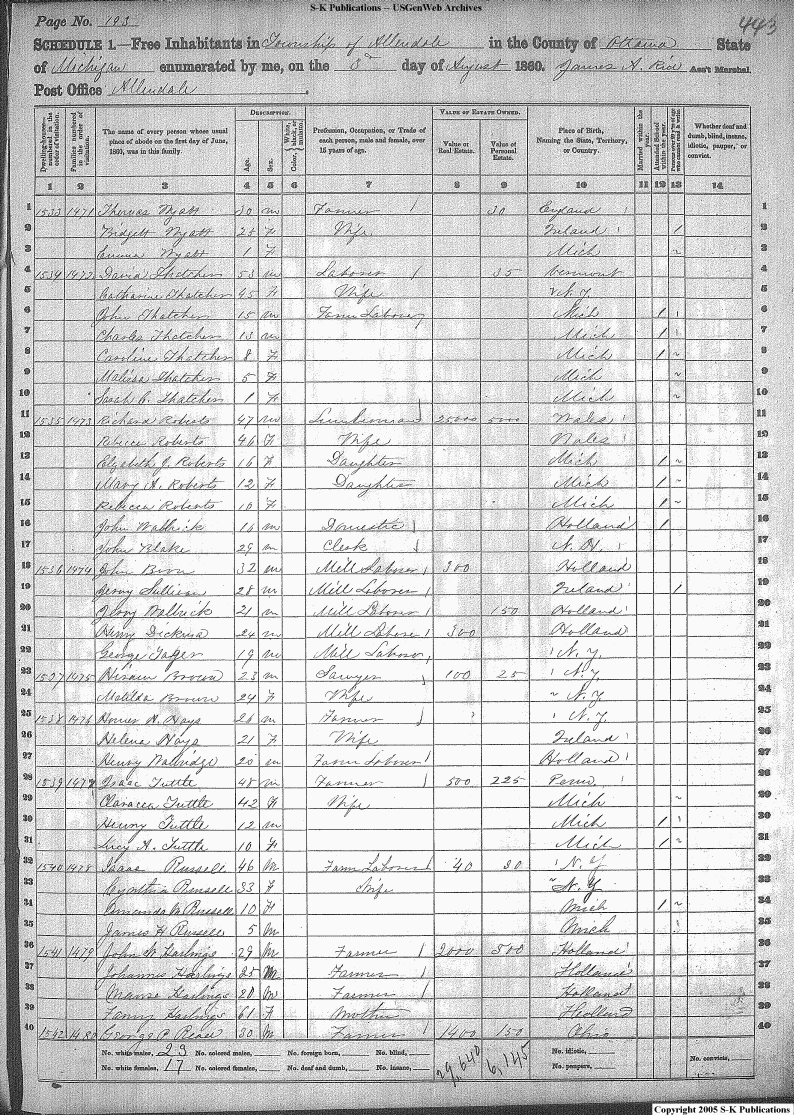 S-K Publications -- USGenWeb Archives
Page No. 193
443
SCHEDULE 1.—Free Inhabitants in Township of Allendale in the County of Ottawa State
of Michigan enumerated by me, on the 3d day of August 1860. James A. Ass't Marshal.
Post Office Allendale
Dwelling-houses—numbered in the order of visitation.
Families numbered in the order of visitation.
The name of every person whose usual place of abode on the first day of June, 1860, was in this family.
DESCRIPTION.
Age.
Sex.
Color, White, black, or mulatto.
Profession, Occupation, or Trade of each person, male and female, over 15 years of age.
VALUE OF ESTATE OWNED.
Value of Real Estate.
Value of Personal Estate.
Place of Birth, Naming the State, Territory, or Country.
Married within the year.
Attended School within the year.
Persons over 20 y'rs of age who cannot read & write.
Whether deaf and dumb, blind, insane, idiotic, pauper, or convict.
1 2 3 4 5 6 7 8 9 10 11 12 13 14
1 1533 1471 Thomas Wyatt 30 m Farmer 30 England 1
2 Bridgett Wyatt 28 F Wife Ireland 1 2
3 Emma Wyatt 1 F Mich 3
4 1534 1472 David Thatcher 53 m Laborer 35 Vermont 4
5 Catharine Thatcher 45 F Wife N.Y. 5
6 John Thatcher 15 m Farm Laborer Mich 1 6
7 Charles Thatcher 13 m Mich 1 7
8 Caroline Thatcher 8 F Mich 1 8
9 Malissa Thatcher 5 F Mich 9
10 Sarah Thatcher 1 F Mich 10
11 1535 1473 Richard Roberts 47 m Lumberman 25000 5000 Wales 11
12 Rebecca Roberts 46 F Wife Wales 12
13 Elizabeth J. Roberts 16 F Daughter Mich 1 13
14 Mary A. Roberts 12 F Daughter Mich 1 14
15 Rebecca Roberts 10 F Mich 1 15
16 John Walbrick 16 m Domestic Holland 1 16
17 John Blake 29 m Clerk N.H. 17
18 1536 1474 John 32 m Mill Laborer 300 Holland 18
19 Jerry Sullivan 28 m Mill Laborer Ireland 1 19
20 Walbrick 21 m Mill Laborer 150 Holland 20
21 Henry 24 m Mill Laborer 300 Holland 21
22 George 19 m Mill Laborer N.Y. 22
23 1537 1475 Hiram Brown 23 m Sawyer 100 25 N.Y. 23
24 Matilda Brown 24 F Wife N.Y. 24
25 1538 1476 Homer Hays 26 m Farmer N.Y. 25
26 Helena Hays 21 F Wife Ireland 26
27 Henry 20 m Farm Laborer Holland 27
28 1539 1477 Isaac Tuttle 48 m Farmer 500 225 Penn. 28
29 Tuttle 42 F Wife Mich 29
30 Henry Tuttle 12 m Mich 1 30
31 Lucy A. Tuttle 10 F Mich 1 31
32 1540 1478 Isaac Russell 46 m Farm Laborer 40 30 N.Y. 32
33 Cynthia Russell 33 F Wife N.Y. 33
34 Amanda M Russell 10 F Mich 1 34
35 James H Russell 5 m Mich 35
36 1541 1479 John W Harlings 29 m Farmer 2000 500 Holland 36
37 Johannes Harlings 25 m Farmer Holland 37
38 Harlings 20 m Farmer Holland 38
39 Fanny Harlings 61 F Mother Holland 39
40 1542 1480 George 30 m Farmer 1400 150 Ohio 40
No. white males, 23 No. colored males, No. foreign born, No. blind, 29,640 6,145 No. idiotic,
No. white females, 17 No. colored females, No. deaf and dumb, No. insane, No. paupers, No. convicts,
Copyright 2005 S-K Publications